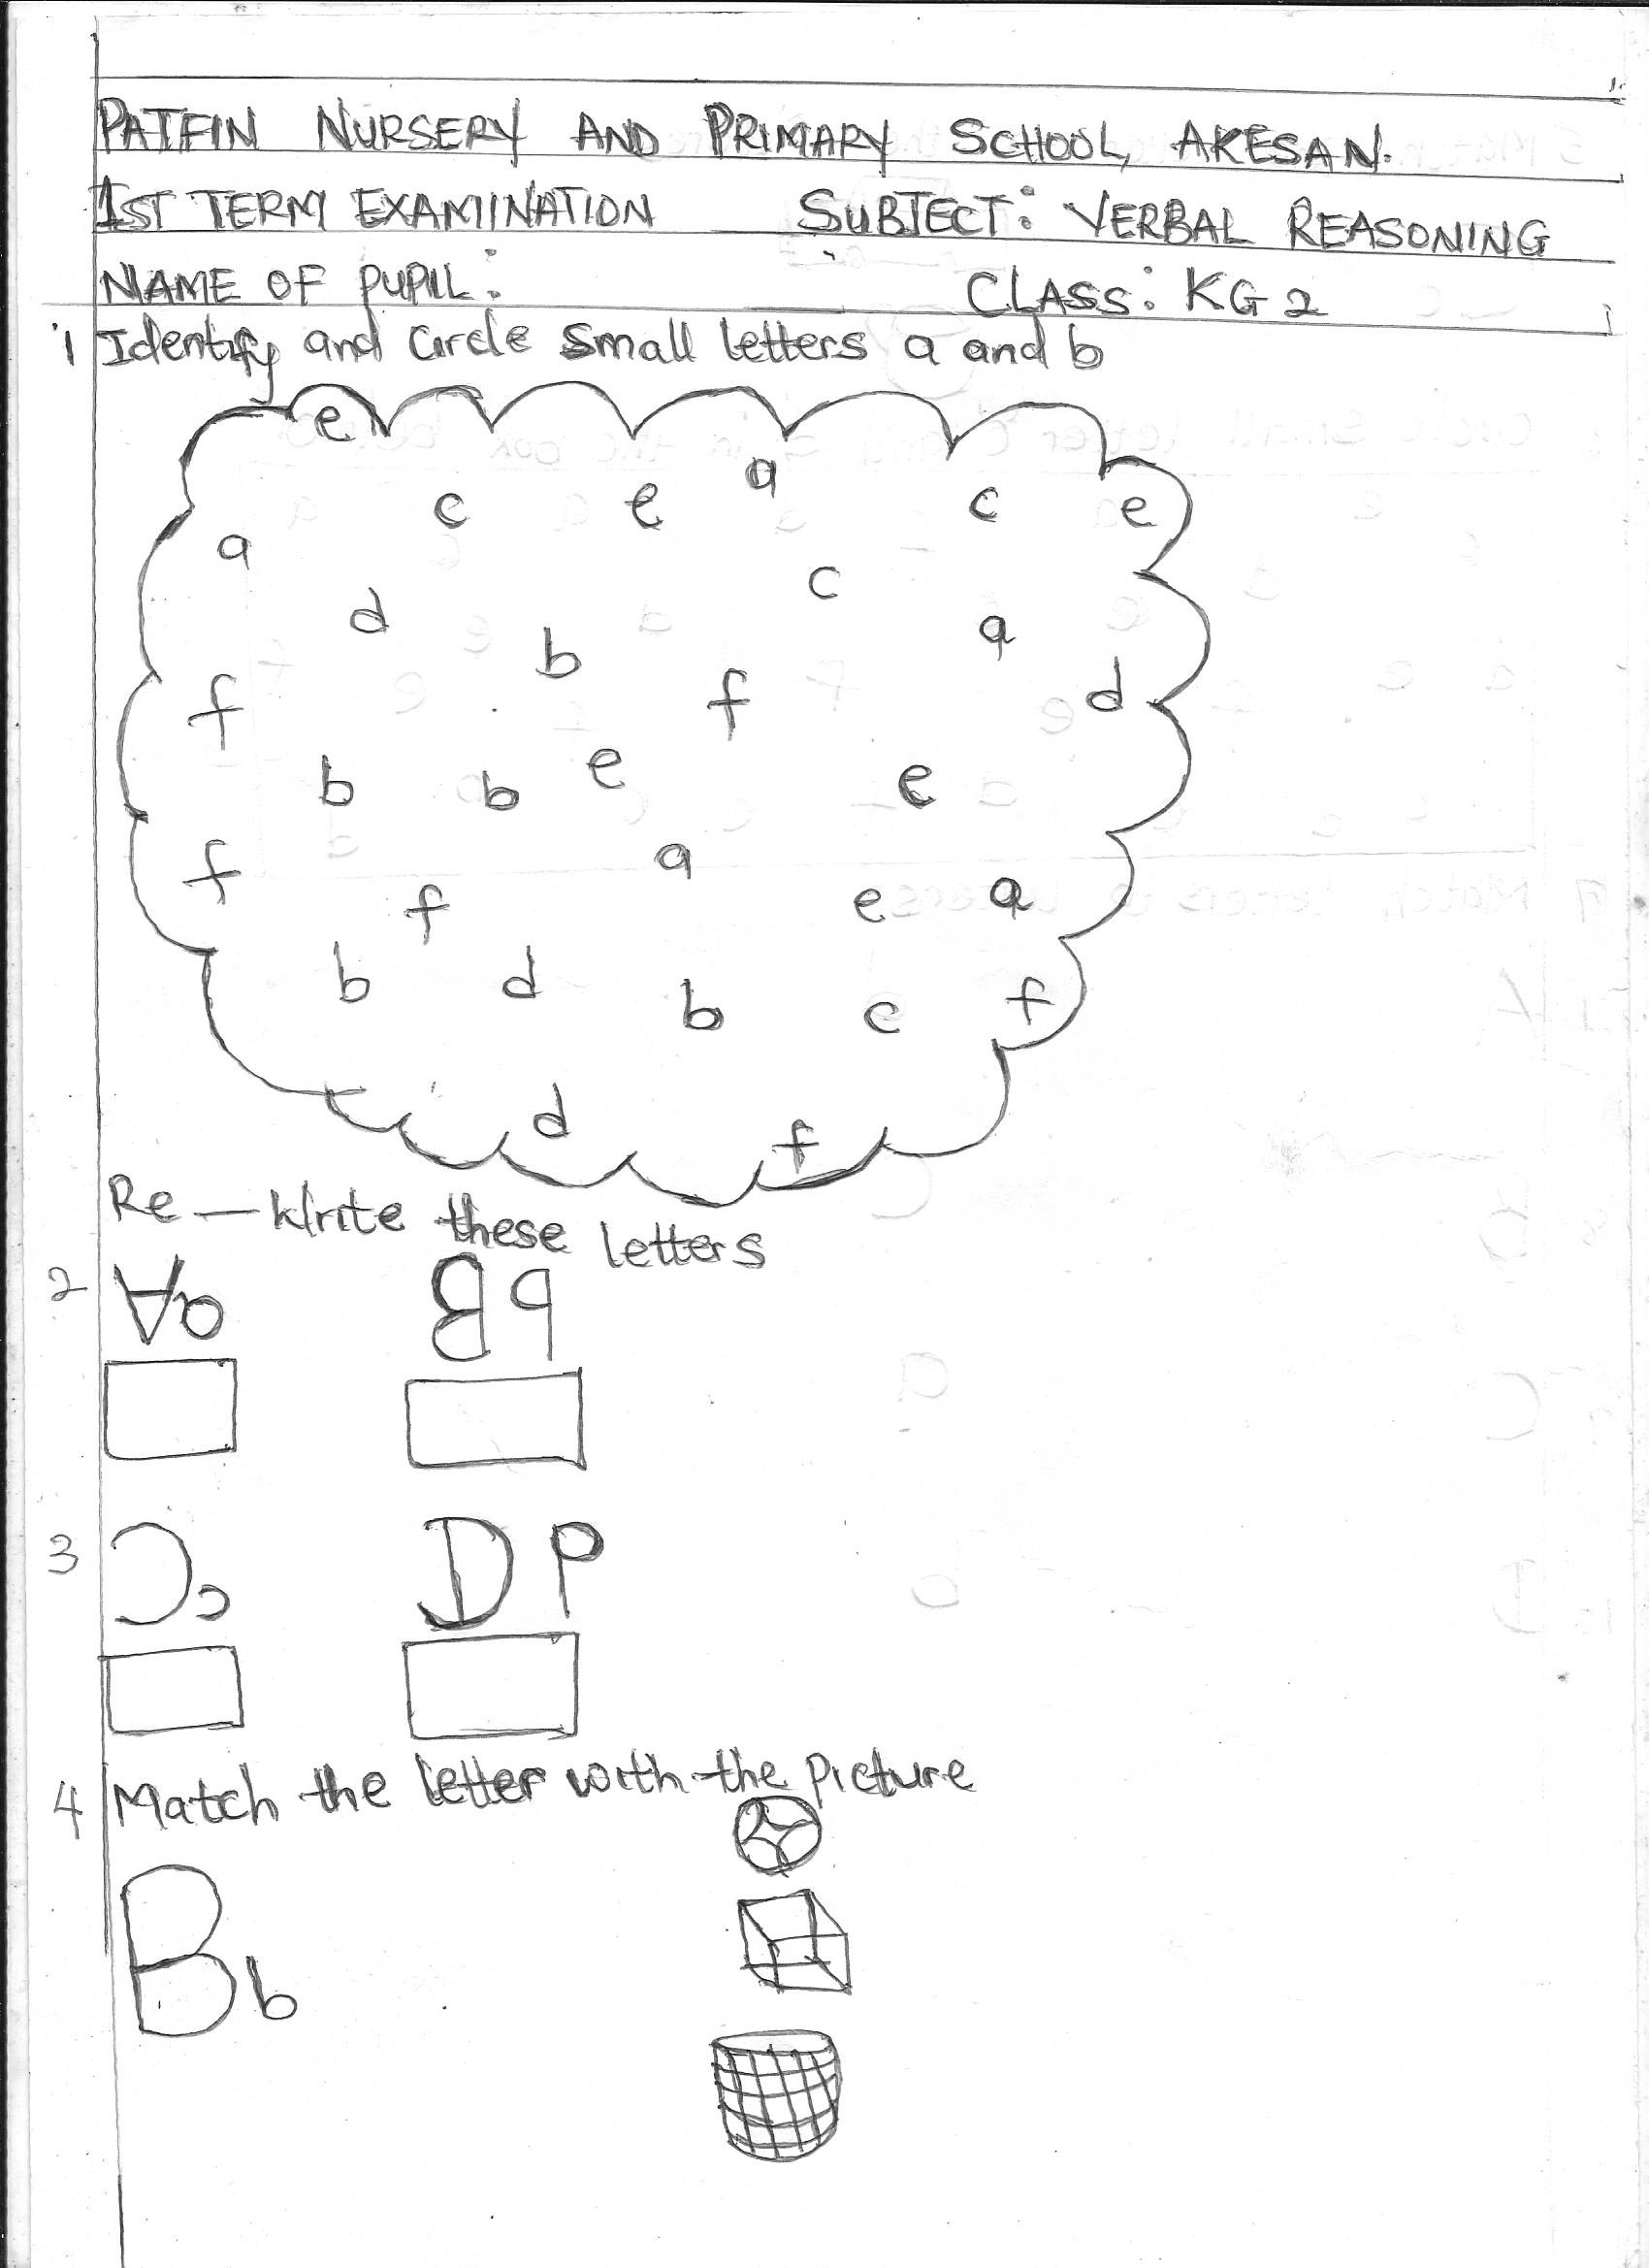 PATFIN NURSERY AND PRIMARY SCHOOL, AKESAN.
1ST TERM EXAMINATION SUBJECT: VERBAL REASONING
NAME OF PUPIL: CLASS: KG 2
1 Identify and circle small letters a and b
e
a
c e c e
a
c
d a
b
f f d
b b e e
f a
f e a
b d f
b c
d
f
Re-Write these letters
2 Aa Bb
3 Cc D P
4 Match the letter with the picture
Bb